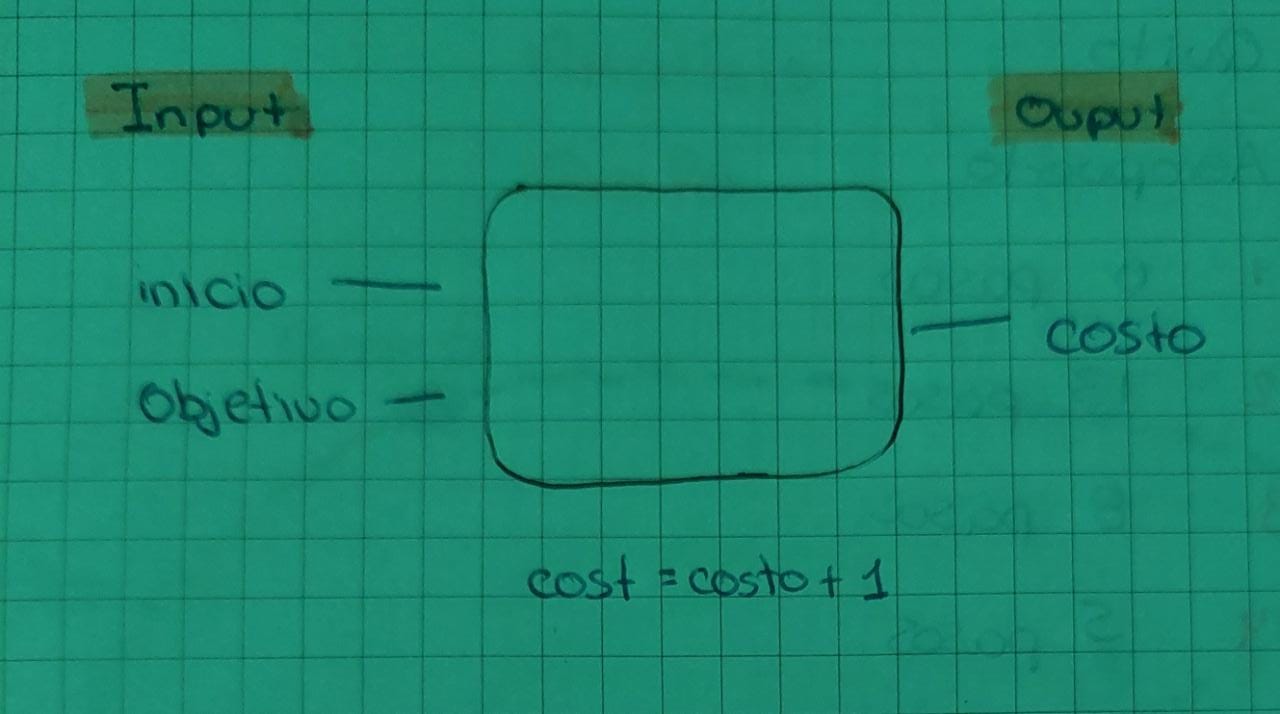 Input
Ouput
inicio
Objetivo
costo
cost = costo + 1